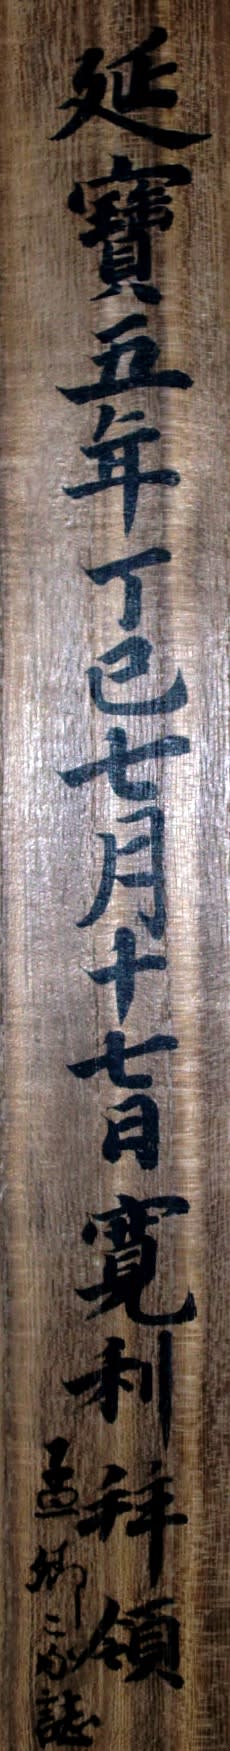 延寳五年丁巳七月十七日寛利拜領
孟郷誌